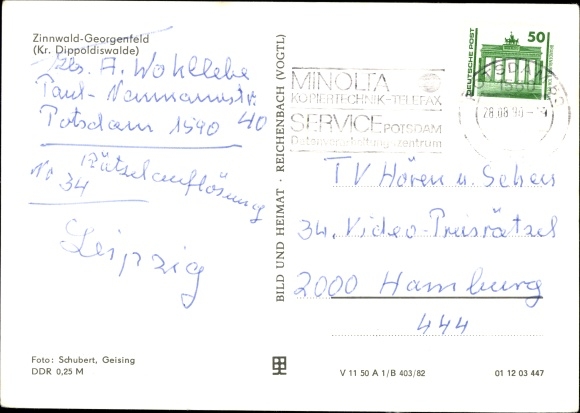 Zinnwald-Georgenfeld
(Kr. Dippoldiswalde)
Abs. A. Wohllebe
Paul-Neumannstr.
40
Potsdam 1590
Rätselauflösung
No 34
Leipzig
Foto: Schubert, Geising
DDR 0,25 M
BILD UND HEIMAT · REICHENBACH (VOGTL)
MINOLTA
KOPIERTECHNIK-TELEFAX
SERVICE POTSDAM
Datenverarbeitungszentrum
POTSDAM
28.08.90
DEUTSCHE POST
50
TV Hören u. Sehen
34. Video-Preisrätsel
2000 Hamburg
444
V 11 50 A 1/B 403/82
01 12 03 447